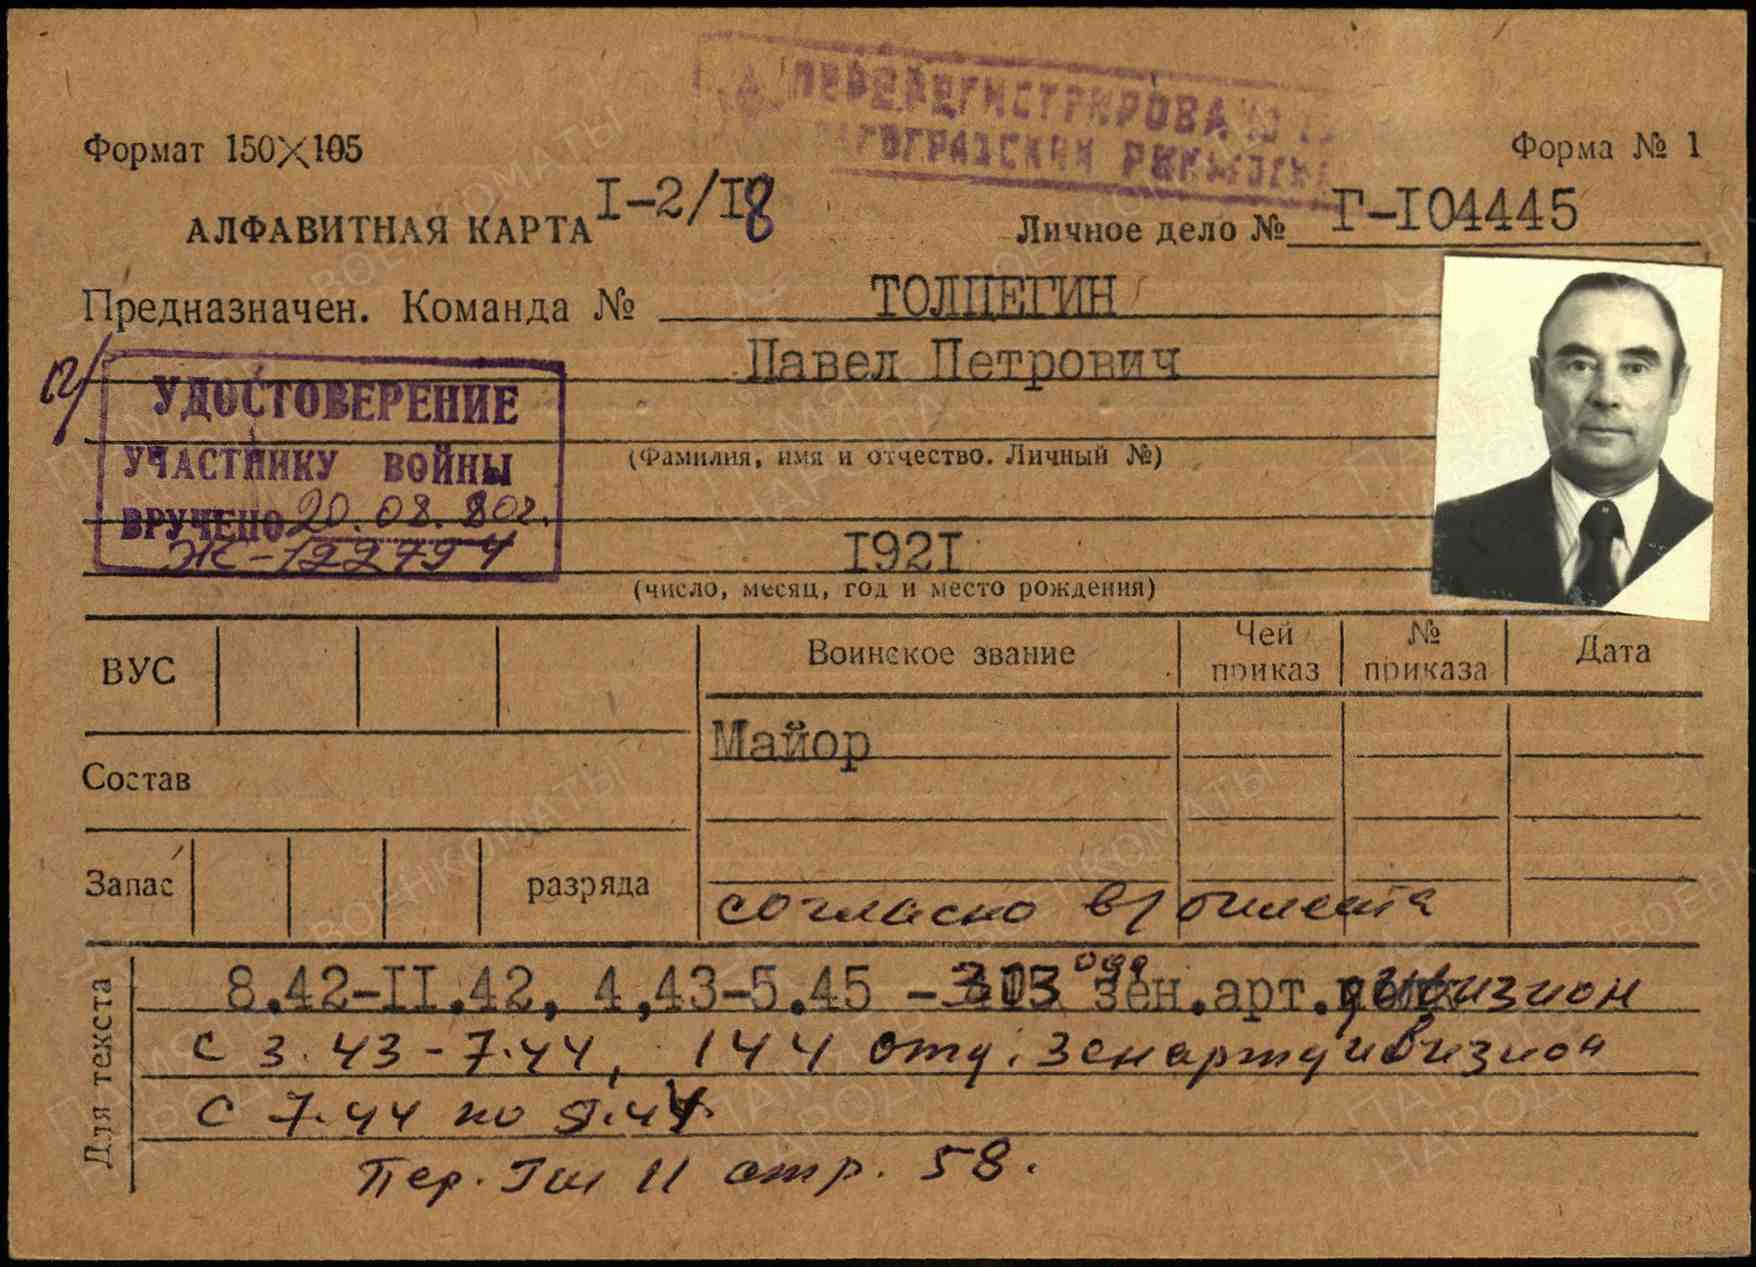 ПЕРЕРЕГИСТРИРОВАНО
Формат 150×105
Форма № 1
АЛФАВИТНАЯ КАРТА I-2/I8
Личное дело № Г-I04445
Предназначен. Команда № ТОЛПЕГИН
Павел Петрович
УДОСТОВЕРЕНИЕ
УЧАСТНИКУ ВОЙНЫ
ВРУЧЕНО 20.08.80г.
Ж-122794
(Фамилия, имя и отчество. Личный №)
I92I
(число, месяц, год и место рождения)
ВУС
Воинское звание
Чей приказ
№ приказа
Дата
Майор
Состав
Запас
разряда
согласно в/билета
Для текста
8.42-II.42, 4,43-5.45 - зен.арт.дивизион
с 3.43-7.44, 144 отд. зенартдивизион
с 7.44 по
Пер. Гш II стр. 58.
ПАМЯТЬ НАРОДА
ВОЕНКОМАТЫ